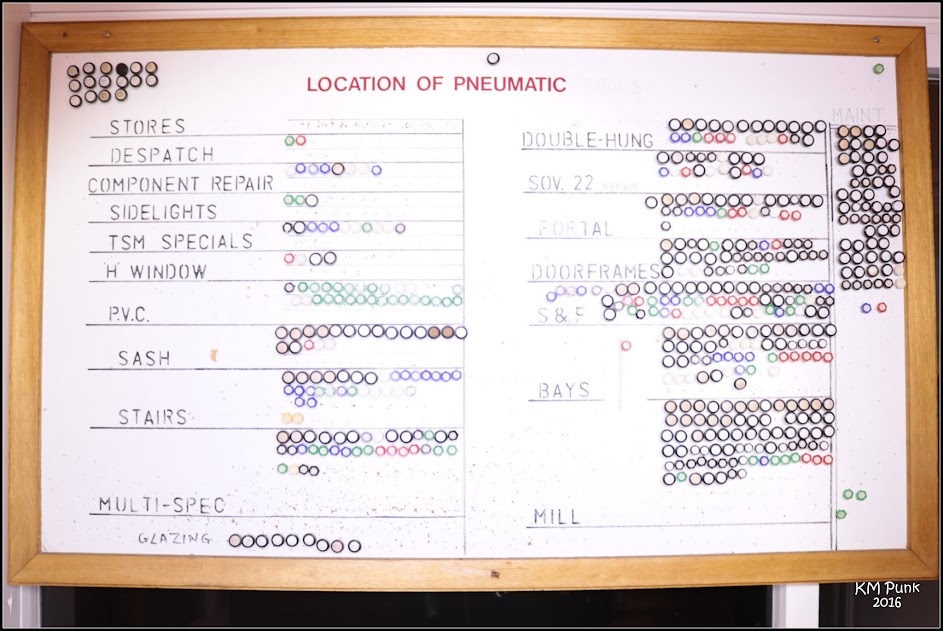 LOCATION OF PNEUMATIC
STORES
DESPATCH
COMPONENT REPAIR
SIDELIGHTS
TSM SPECIALS
H WINDOW
P.V.C.
SASH
STAIRS
MULTI-SPEC
GLAZING
DOUBLE-HUNG
SOV. 22 REPAIR
PORTAL
DOORFRAMES
S & F
BAYS
MILL
MAINT
KM Punk
2016